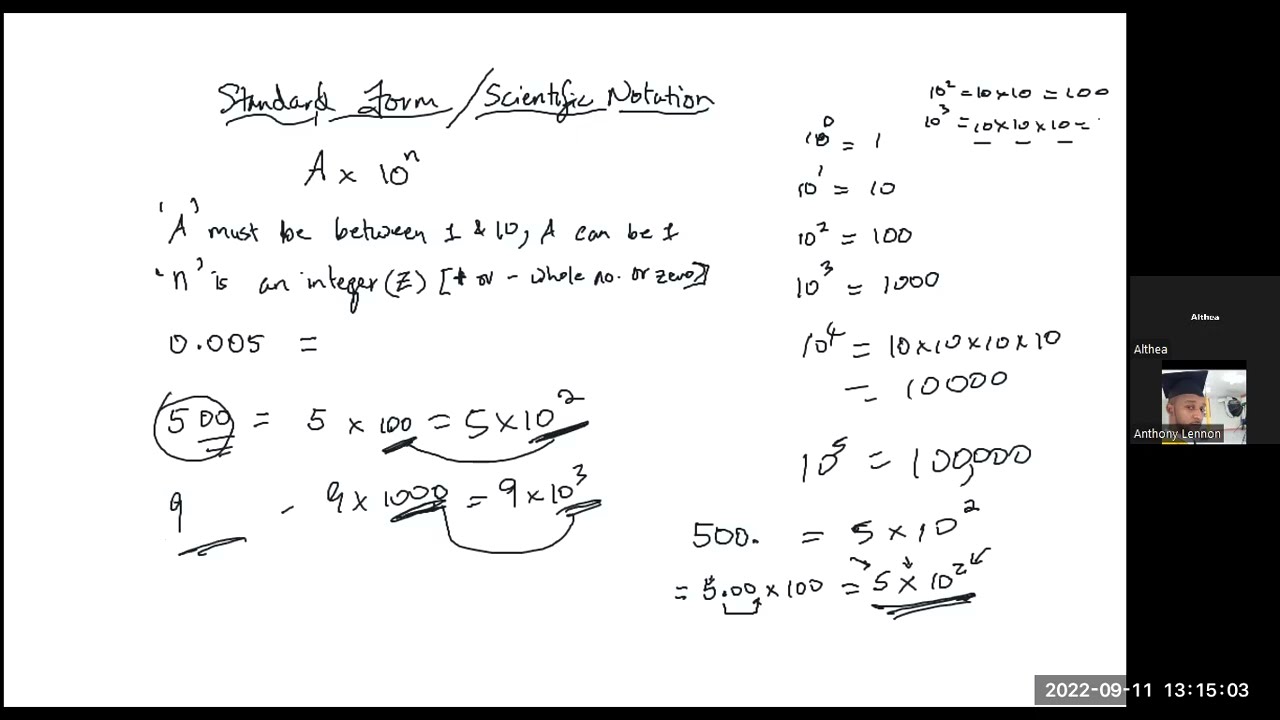 Standard Form / Scientific Notation
A × 10ⁿ
'A' must be between 1 & 10, A can be 1
'n' is an integer (Z) [+ or - whole no. or zero]
0.005 =
500 = 5 × 100 = 5 × 10²
9 - 9 × 1000 = 9 × 10³
10² = 10 × 10 = 100
10³ = 10 × 10 × 10 =
10⁰ = 1
10¹ = 10
10² = 100
10³ = 1000
10⁴ = 10 × 10 × 10 × 10
= 10000
10⁵ = 100,000
500. = 5 × 10²
= 5.00 × 100 = 5 × 10²
Althea
Althea
Anthony Lennon
2022-09-11 13:15:03